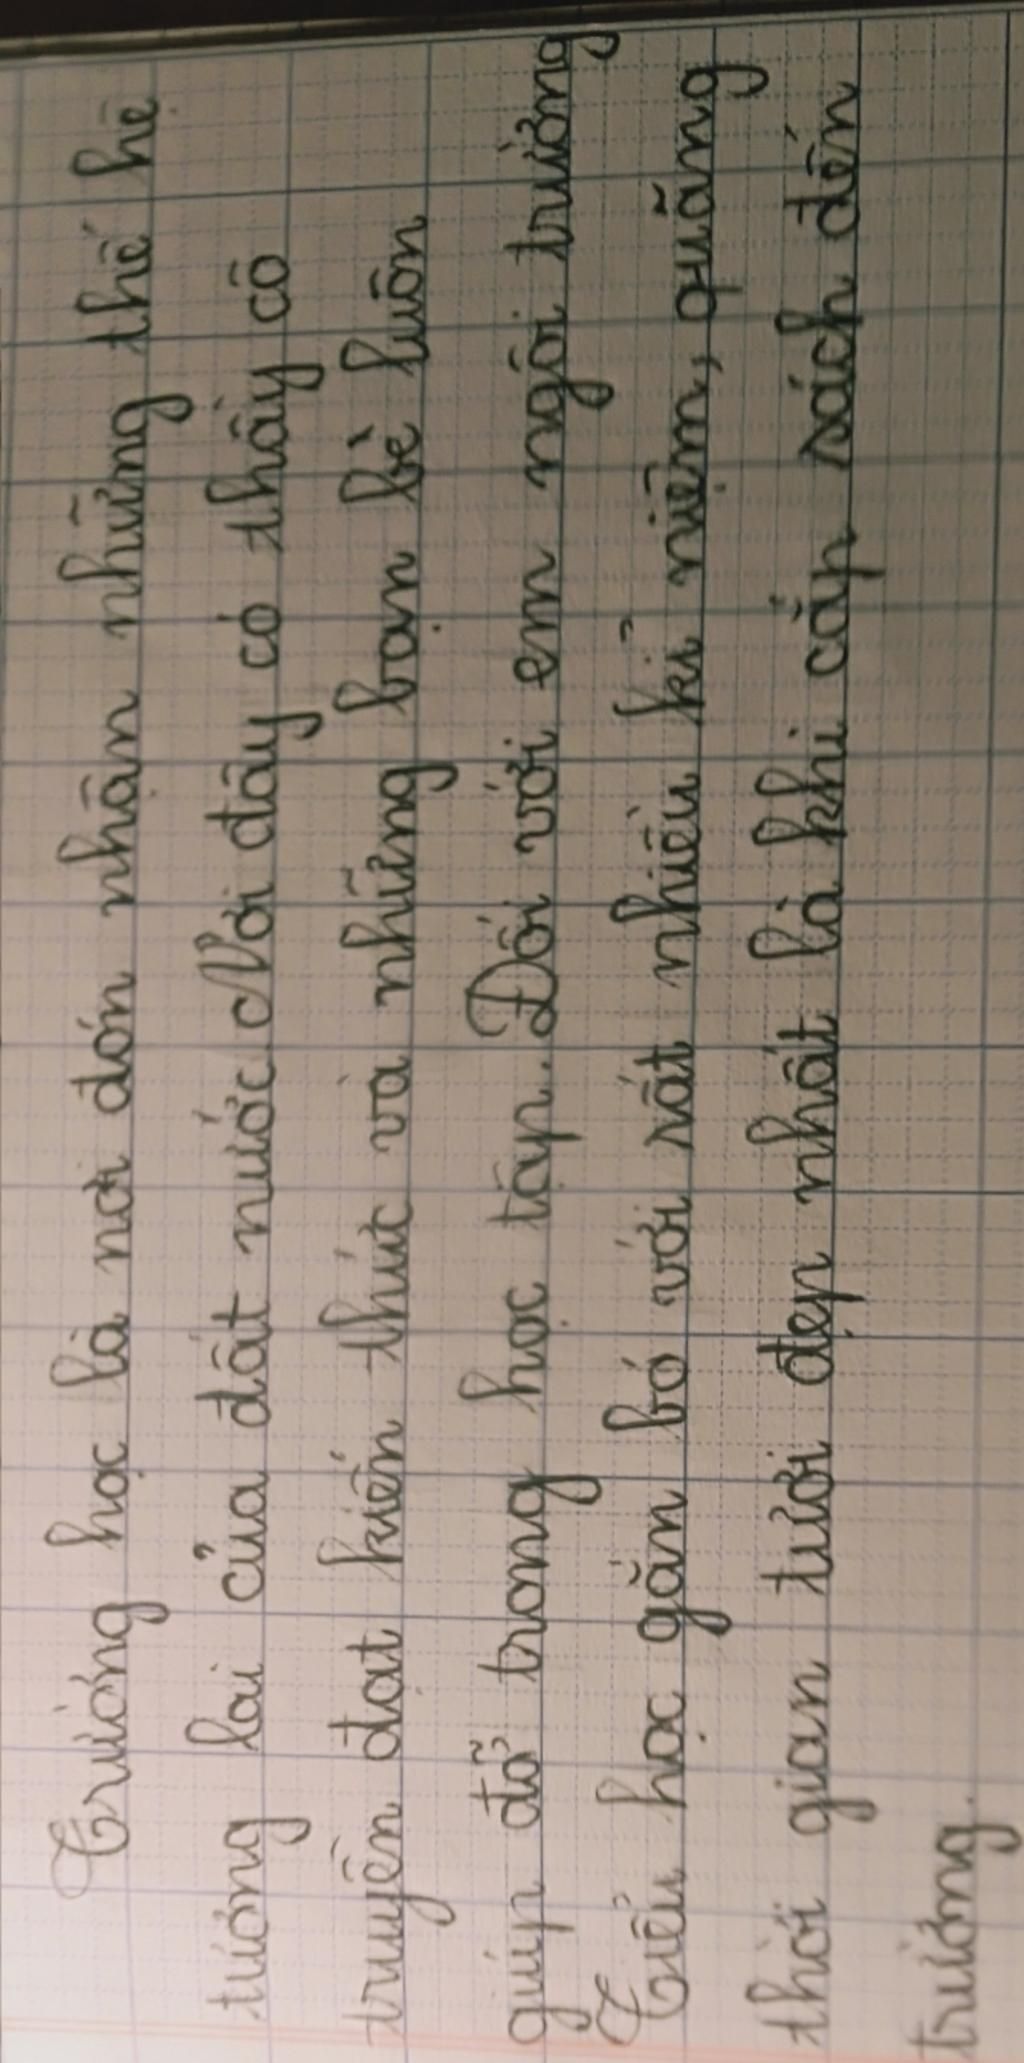 Trường học là nơi đón nhận những thế hệ
tương lai của đất nước. Nơi đây có thầy cô
truyền đạt kiến thức và những bạn bè luôn
giúp đỡ trong học tập. Đối với em ngôi trường
Tiểu học gắn bó với rất nhiều kỉ niệm, quãng
thời gian tươi đẹp nhất là khi cắp sách đến
trường.